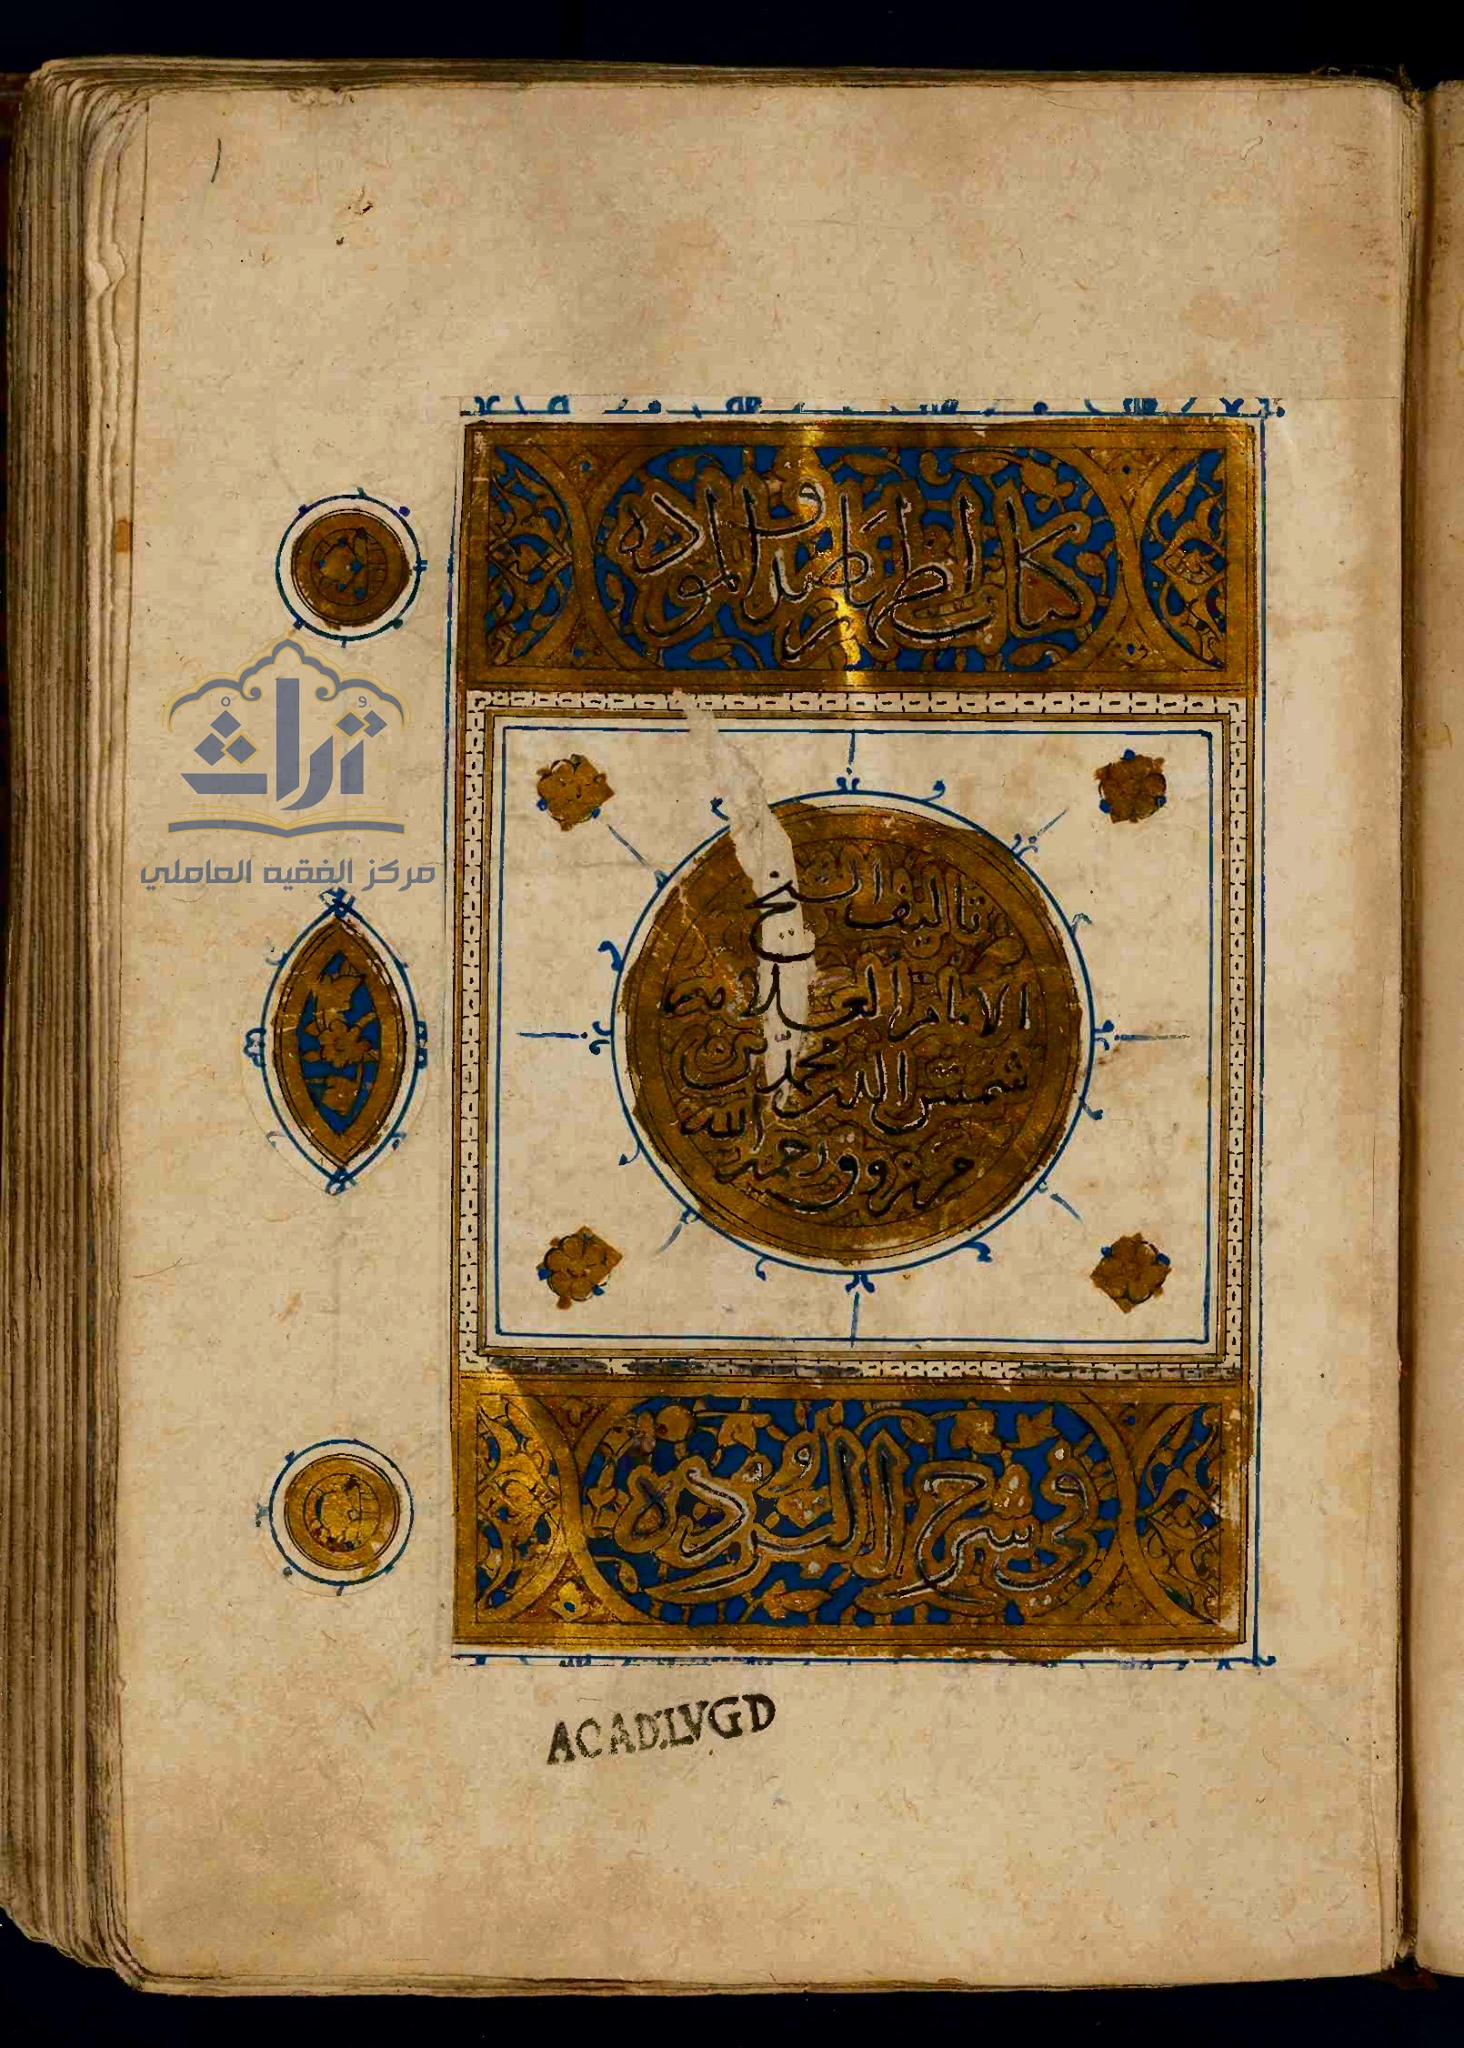 كتاب اظهار صدق الموده
تاليف الشيخ
الامام العلامه
شمس الدين محمد بن
مرزوق رحمه الله
في شرح البرده
تراث
مركز الفقيه العاملي
ACAD.LVGD